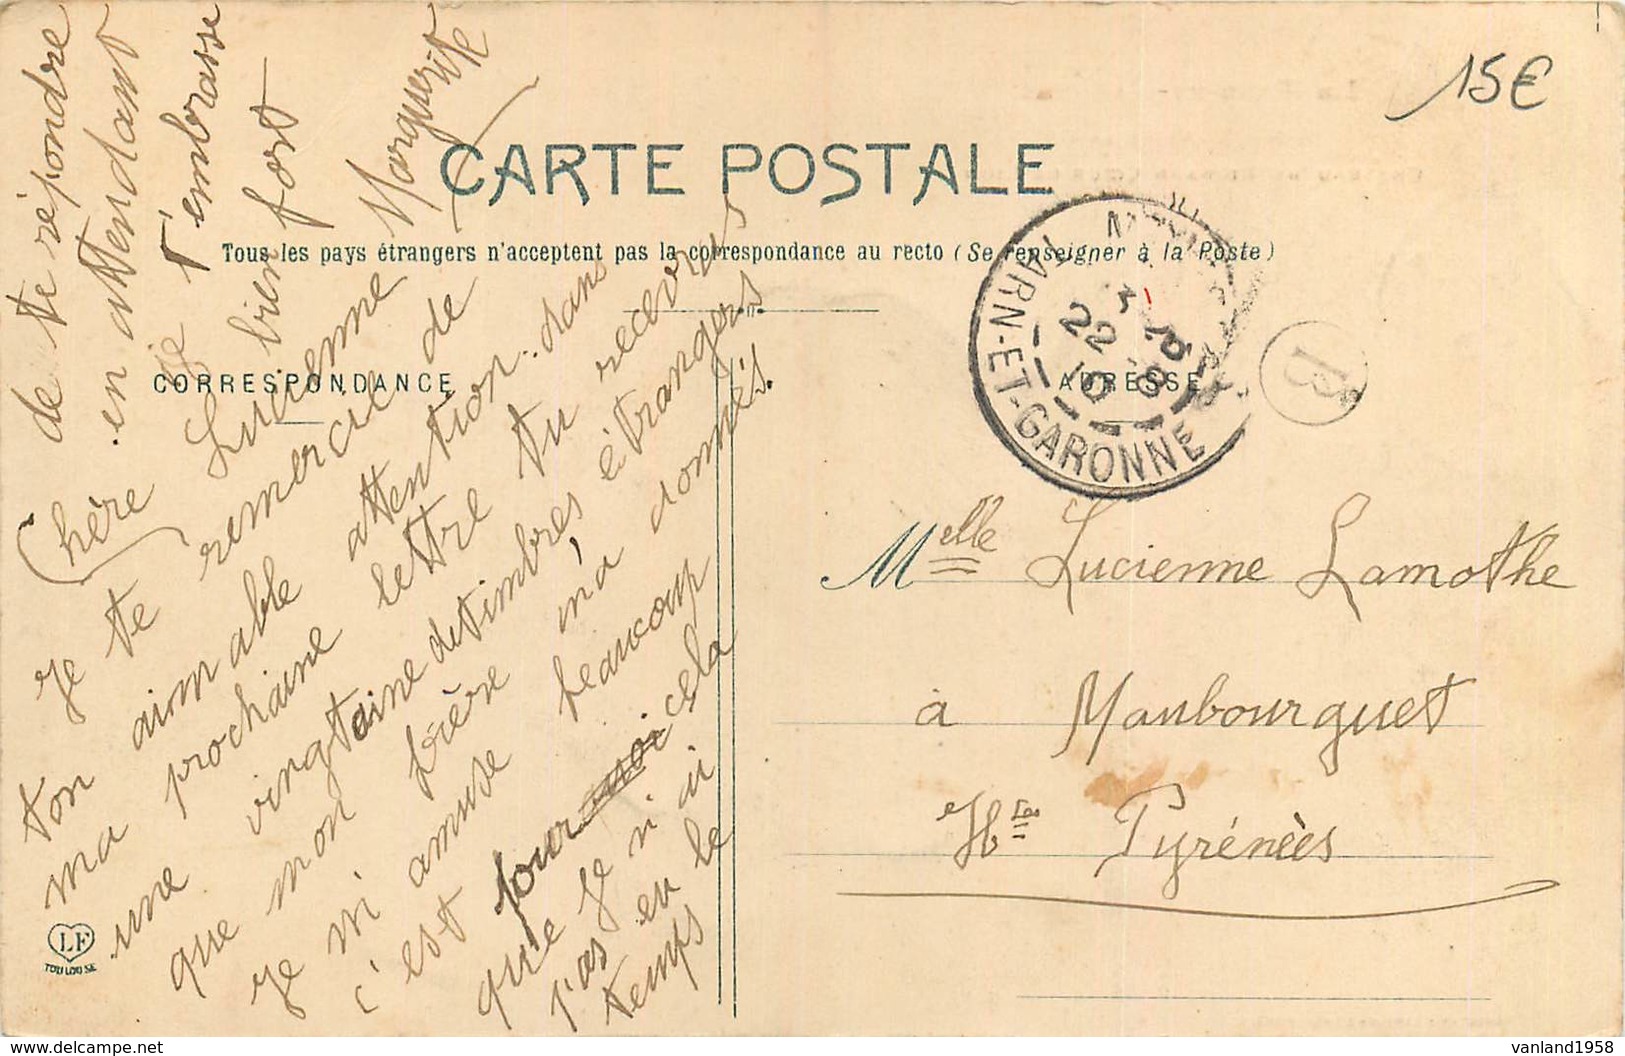 15€
CARTE POSTALE
Tous les pays étrangers n'acceptent pas la correspondance au recto (Se renseigner à la Poste)
CORRESPONDANCE
ADRESSE
Chère Lucienne
Je te remercie de
ton aimable attention. dans
ma prochaine lettre tu recevras
une vingtaine de timbres étrangers
que mon frère m'a donnés.
Je m'i amuse beaucoup
c'est pour cela
que je n'ai
pas eu le
temps
de te répondre
en attendant
je t'embrasse
bien fort
Marguerite
TARN-ET-GARONNE
22
10
B
Melle Lucienne Lamothe
à Maubourguet
Htes Pyrénées
LF
TOULOUSE
vanland1958